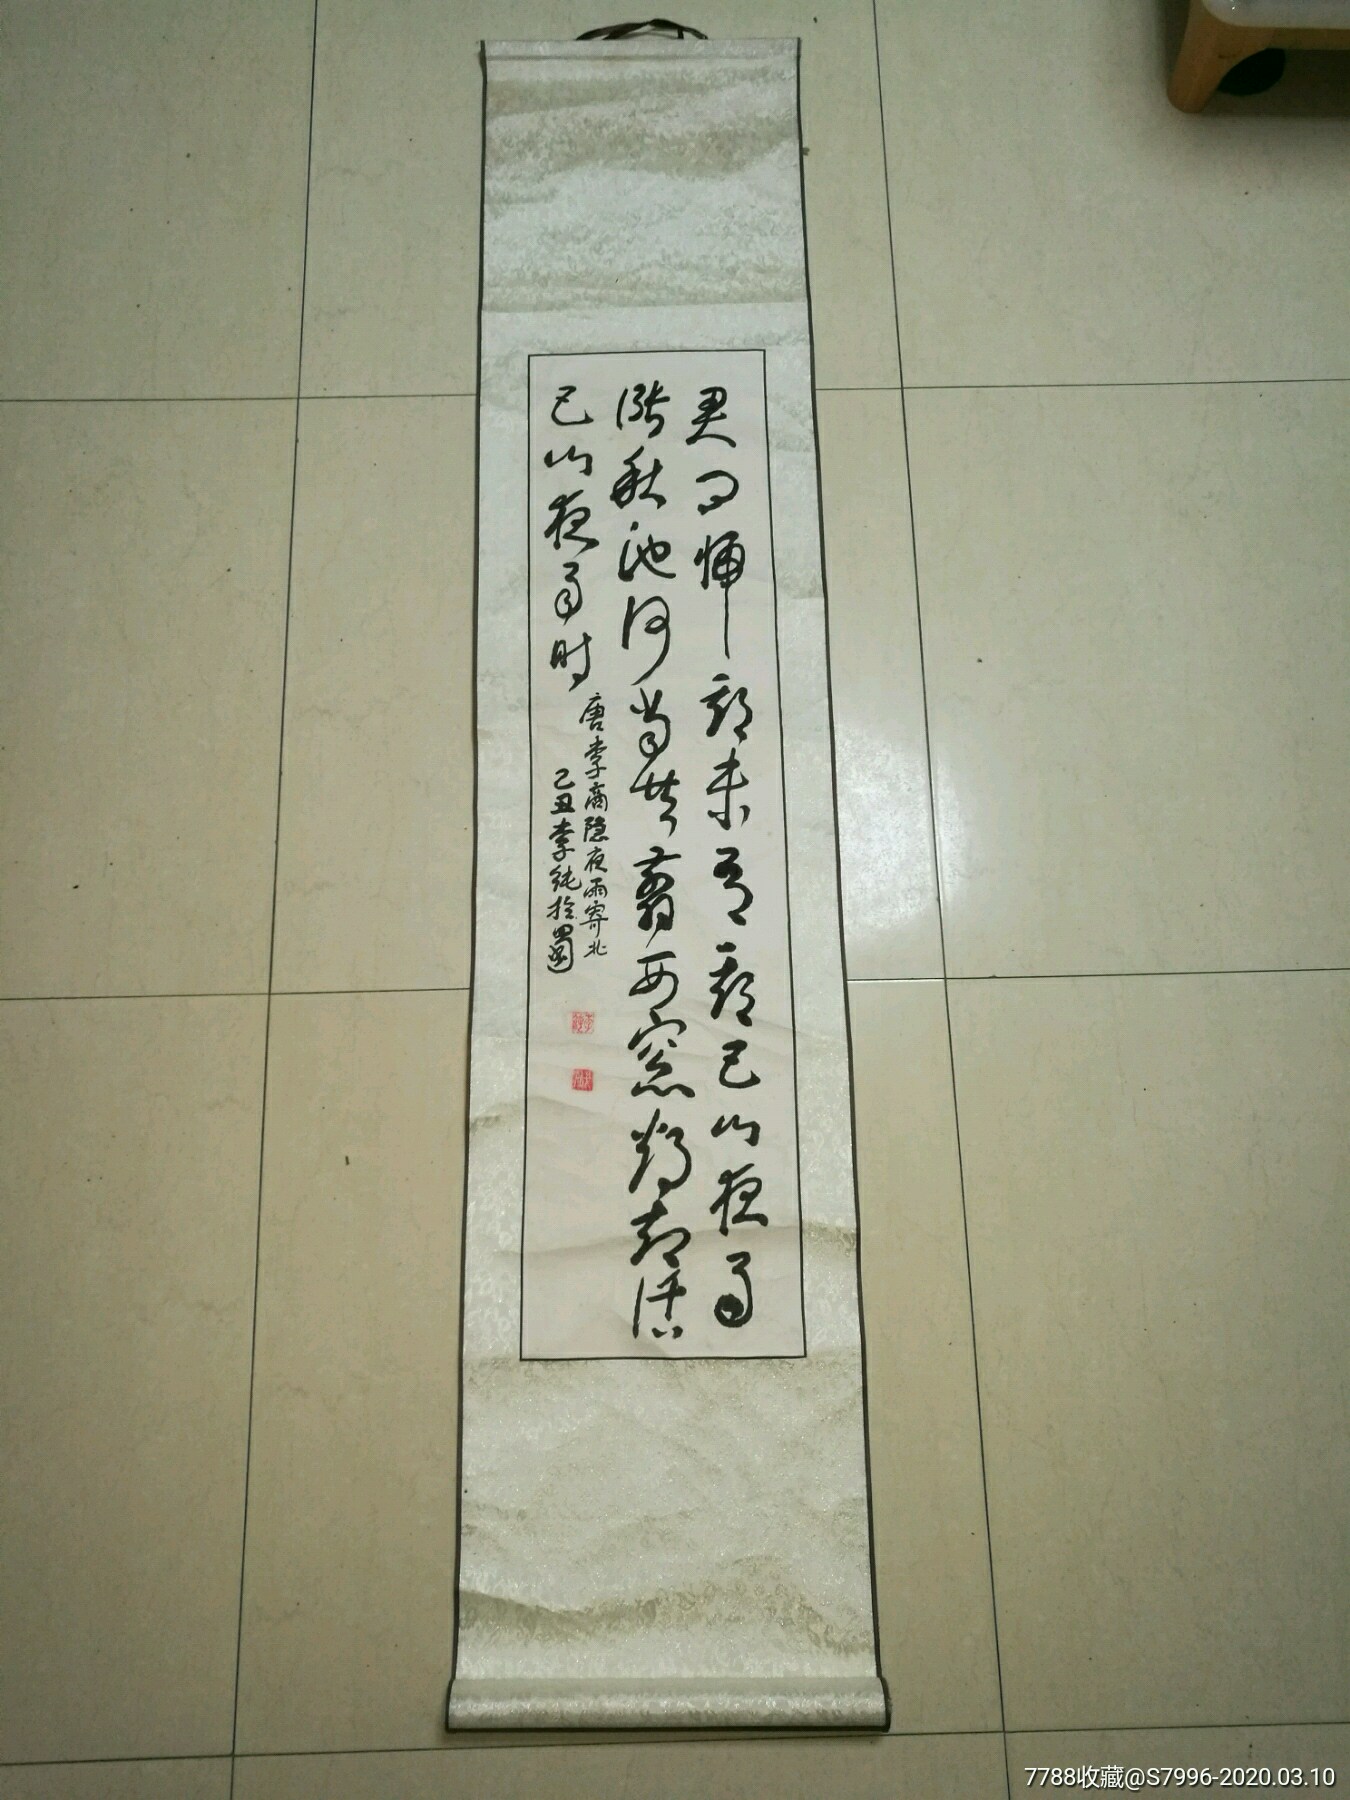 君问归期未有期巴山夜雨
涨秋池何当共剪西窗烛却话
巴山夜雨时
唐李商隐夜雨寄北
己丑李纯于蜀
7788收藏@S7996-2020.03.10